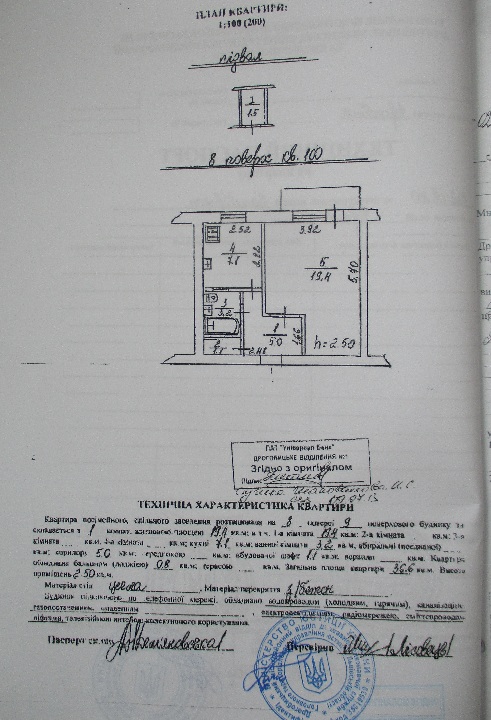 ПЛАН КВАРТИРИ:
1:100 (200)
підвал
1
1.5
8 поверх кв. 100
2.52
3.92
4
7.1
2.82
5
19.4
5.40
3
3.2
1
5.0
1.66
h=2.50
2
1.1
2.48
ПАТ "Універсал Банк"
ДРОГОБИЦЬКЕ ВІДДІЛЕННЯ №1
Згідно з оригіналом
Підпис
ТЕХНІЧНА ХАРАКТЕРИСТИКА КВАРТИРИ
Квартира посімейного, спільного заселення розташована на 8 поверсі 9 поверхового будинку та
складається з 1 кімнат житловою площею 19,4 кв.м; в т.ч. 1-а кімната 19,4 кв.м; 2-а кімната кв.м; 3-я
кімната кв.м; 4-а кімната кв.м; кухні 7,1 кв.м; ванної кімнати 3,2 кв.м; вбиральні (поєднаної)
кв.м; коридору 5.0 кв.м; кв.м; вбудованої шафи 1.1 кв.м; веранди кв.м. Квартира
обладнана балконом (лоджією) 0.8 кв.м; терасою кв.м. Загальна площа квартири 36,6 кв.м. Висота
приміщень 2.50 кв.м.
Матеріали стін цегла, Матеріали перекриття з/бетон
Будинок підключено до електричної мережі, обладнано водопроводом (холодним, гарячим), каналізацією,
газопостачанням, опаленням, електроплитами, радіомережею, сміттєпроводом,
ліфтами, телевізійною антеною колективного користування.
Паспорт склав
Перевірив